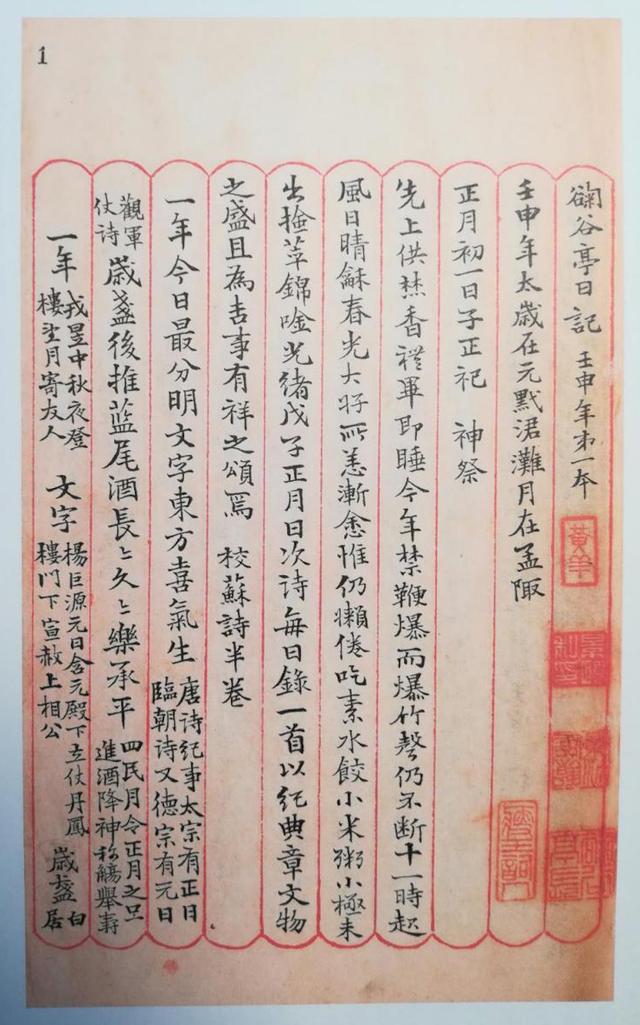 1
谷亭日記 壬申年第一本
壬申年太歲在元黓涒灘月在孟陬
正月初一日子正祀 神祭
先上供焚香禮畢即睡今年禁鞭爆而爆竹聲仍不斷十一時起
風日晴龢春光大好所恙漸愈惟仍嬾倦吃素水餃小米粥小極未
出撿萃錦唫光緒戊子正月日次詩每日錄一首以紀典章文物
之盛且為吉事有祥之頌焉 校蘇詩半卷
一年今日最分明文字東方喜氣生 唐詩紀事太宗有正日臨朝詩又德宗有元日
觀軍仗詩 歲盞後推藍尾酒長〻久〻樂承平 四民月令正月之旦進酒降神称觴舉壽
一年 戎昱中秋夜登樓望月寄友人 文字 楊巨源元日含元殿下立仗丹鳳樓門下宣赦上相公 歲盞 白居